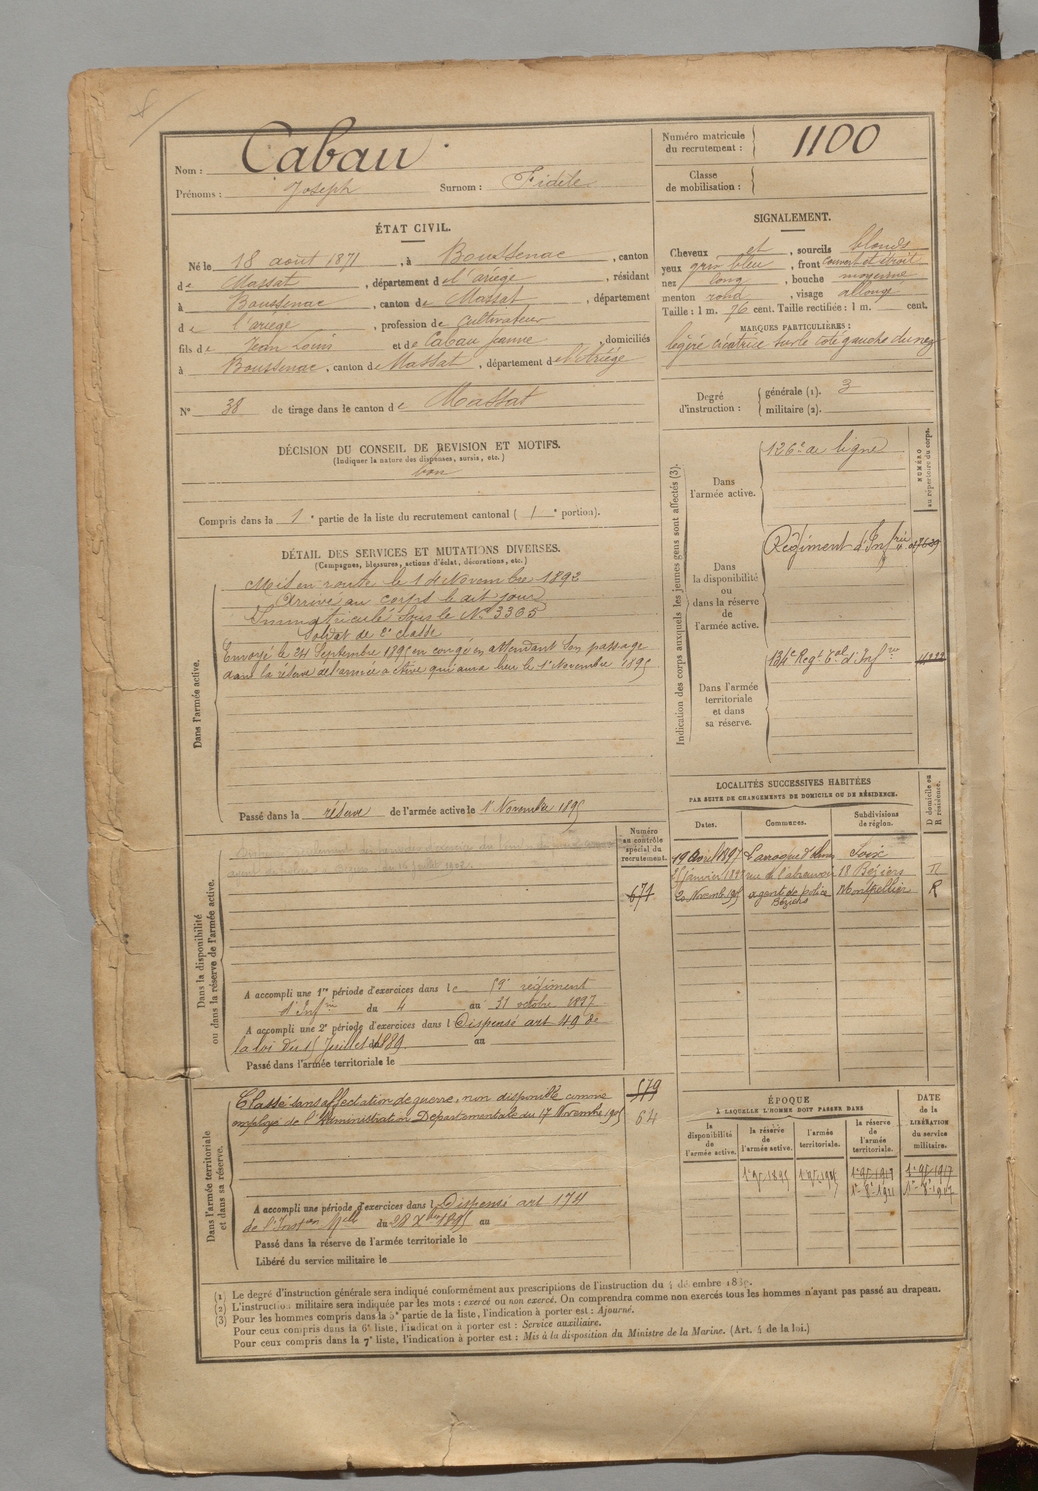 Nom : Cabau
Prénoms : Joseph Surnom : Fidèle
Numéro matricule du recrutement : 1100
Classe de mobilisation :
ÉTAT CIVIL.
Né le 18 août 1871, à Boussenac, canton
de Massat, département de l'ariège, résidant
à Boussenac, canton de Massat, département
de l'ariège, profession de cultivateur
fils de Jean Louis et de Cabau Jeanne, domiciliés
à Boussenac, canton de Massat, département de l'Ariège
N° 38 de tirage dans le canton de Massat
SIGNALEMENT.
Cheveux et, sourcils blonds
yeux gris bleu, front couvert et étroit
nez long, bouche moyenne
menton rond, visage allongé
Taille : 1 m. 76 cent. Taille rectifiée : 1 m. cent.
MARQUES PARTICULIÈRES :
légère cicatrice sur le coté gauche du nez
Degré d'instruction : générale (1). 3
militaire (2).
DÉCISION DU CONSEIL DE REVISION ET MOTIFS.
(Indiquer la nature des dispenses, sursis, etc.)
bon
Compris dans la 1e partie de la liste du recrutement cantonal ( 1e portion).
DÉTAIL DES SERVICES ET MUTATIONS DIVERSES.
(Campagnes, blessures, actions d'éclat, décorations, etc.)
Dans l'armée active.
Mis en route le 14 Novembre 1892
Arrivé au corps le dit jour
Immatriculé sous le N° 3365
Soldat de 2e classe
Envoyé le 24 Septembre 1895 en congé en attendant son passage
dans la réserve de l'armée active qui aura lieu le 1er Novembre 1895
Passé dans la réserve de l'armée active le 1er Novembre 1895
Indication des corps auxquels les jeunes gens sont affectés (3).
NUMÉRO au répertoire du corps.
Dans l'armée active.
126e de ligne
Dans la disponibilité ou dans la réserve de l'armée active.
Régiment d'Infrie
Dans l'armée territoriale et dans sa réserve.
134e Regt tal d'Infrie
LOCALITÉS SUCCESSIVES HABITÉES
PAR SUITE DE CHANGEMENTS DE DOMICILE OU DE RÉSIDENCE.
D domicile ou R résidence.
Dates. Communes. Subdivisions de région.
19 avril 1897 Larroque d'olmes Foix
rue de l'abreuvoir 18 Béziers R
20 Novemb 1905 agent de police Béziers Montpellier R
Dans la disponibilité ou dans la réserve de l'armée active.
Numéro au contrôle spécial du recrutement.
671
A accompli une 1re période d'exercices dans le 59e régiment
d'Infrie du 4 au 31 octobre 1897
A accompli une 2e période d'exercices dans l Dispensé art 49 de
la loi du 15 Juillet 1889 du au
Passé dans l'armée territoriale le
Dans l'armée territoriale et dans sa réserve.
579
64
Classé sans affectation de guerre, non disponible comme
employé de l'Administration Départementale du 17 Novembre 1905
A accompli une période d'exercices dans l Dispensé art 174
de l'Inston Mlle du 28 Xbre 1895 au
Passé dans la réserve de l'armée territoriale le
Libéré du service militaire le
ÉPOQUE
A LAQUELLE L'HOMME DOIT PASSER DANS
la disponibilité de l'armée active.
la réserve de l'armée active.
l'armée territoriale.
la réserve de l'armée territoriale.
DATE de la LIBÉRATION du service militaire.
(1) Le degré d'instruction générale sera indiqué conformément aux prescriptions de l'instruction du 4 décembre 1889.
(2) L'instruction militaire sera indiquée par les mots : exercé ou non exercé. On comprendra comme non exercés tous les hommes n'ayant pas passé au drapeau.
(3) Pour les hommes compris dans la 5e partie de la liste, l'indication à porter est : Ajourné.
Pour ceux compris dans la 6e liste, l'indication à porter est : Service auxiliaire.
Pour ceux compris dans la 7e liste, l'indication à porter est : Mis à la disposition du Ministre de la Marine. (Art. 4 de la loi.)